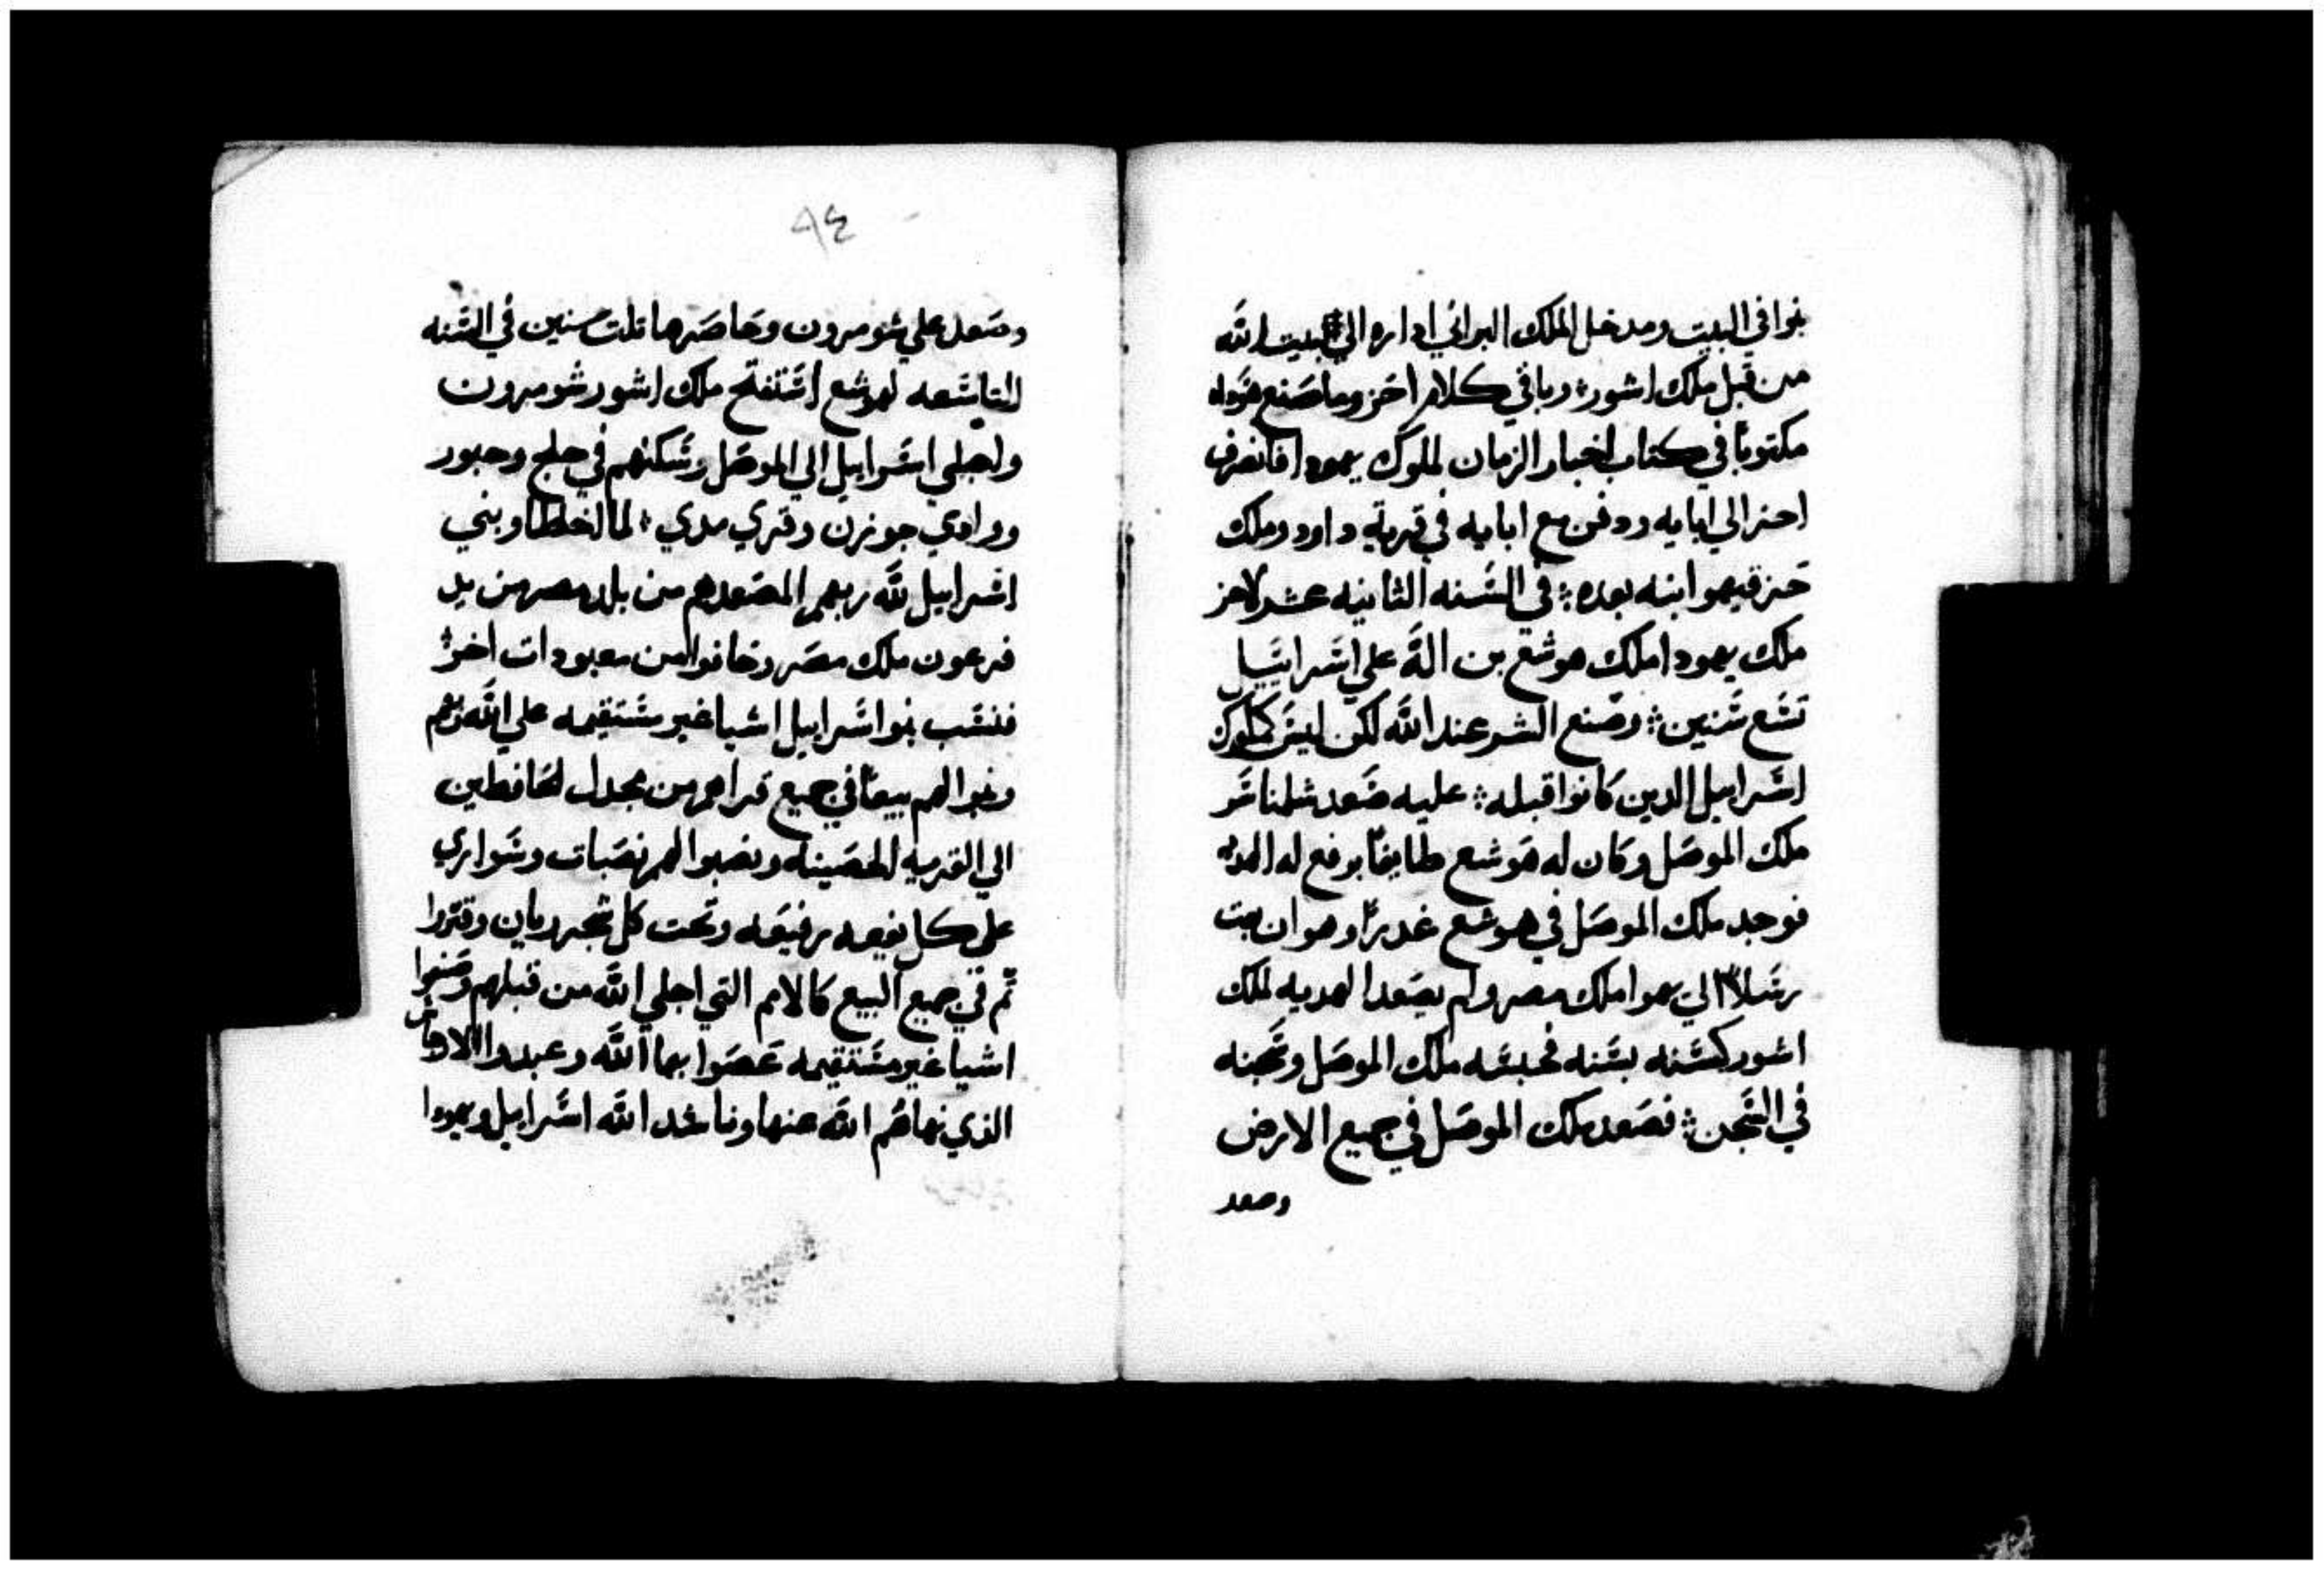 بنوا في البيت ومدخل الملك البراني اداره الي بيت الله
من قبل ملك اشور ؛ وباقي كلام احز وما صنع هوداه
مكتوبًا في كتاب اخبار الزمان لملوك يهودا فانصرف
احز الي ابايه ودفن مع ابايه في قرية داود وملك
حزقيهو ابنه بعده ؛ في السنه الثانيه عشر لاحز
ملك يهودا ملك هوشع بن الة علي اسراييل
تسع سنين ؛ وصنع الشر عند الله لكن ليس كملوك
اسراييل الدين كانوا قبله ؛ عليه صعد شلمناسر
ملك الموصل وكان له هوشع طايعًا يرفع له الهديه
فوجد ملك الموصل في هوشع غدرًا وهو ان بعت
رسلاً الي سوا ملك مصر ولم يصعد الهديه لملك
اشور كسنه بسنه فحبسه ملك الموصل وسجنه
في السجن ؛ فصعد ملك الموصل في جميع الارض
وصعد
٩٤
وصعد علي شومرون وحاصرها تلت سنين في السنه
التاسعه لهوشع استفتح ملك اشور شومرون
واجلي اسراييل الي الموصل وسكنهم في حلح وحبور
ووادي جوزن وقري مدي ؛ لما اخطاو بني
اسراييل لله ربهم المصعدهم من بلد مصر من يد
فرعون ملك مصر وخافوا من معبودات اخر ؛
فنسب بنوا اسراييل اشيا غير مستقيمه علي الله ربهم
وبنوا لهم بيعًا في جميع قراهم من مجدل الحافطين
الي القريه الحصينه ونصبوا لهم نصبات وسواري
علي كل بقعه رفيعه وتحت كل شجر ريان وقتروا
ثم في جميع البيع كالامم التي اجلي الله من قبلهم وصنعوا
اشيا غير مستقيمه عصوا بها الله وعبدوا الاوثان
الذي نهاهم الله عنها وناشد الله اسراييل ويهودا